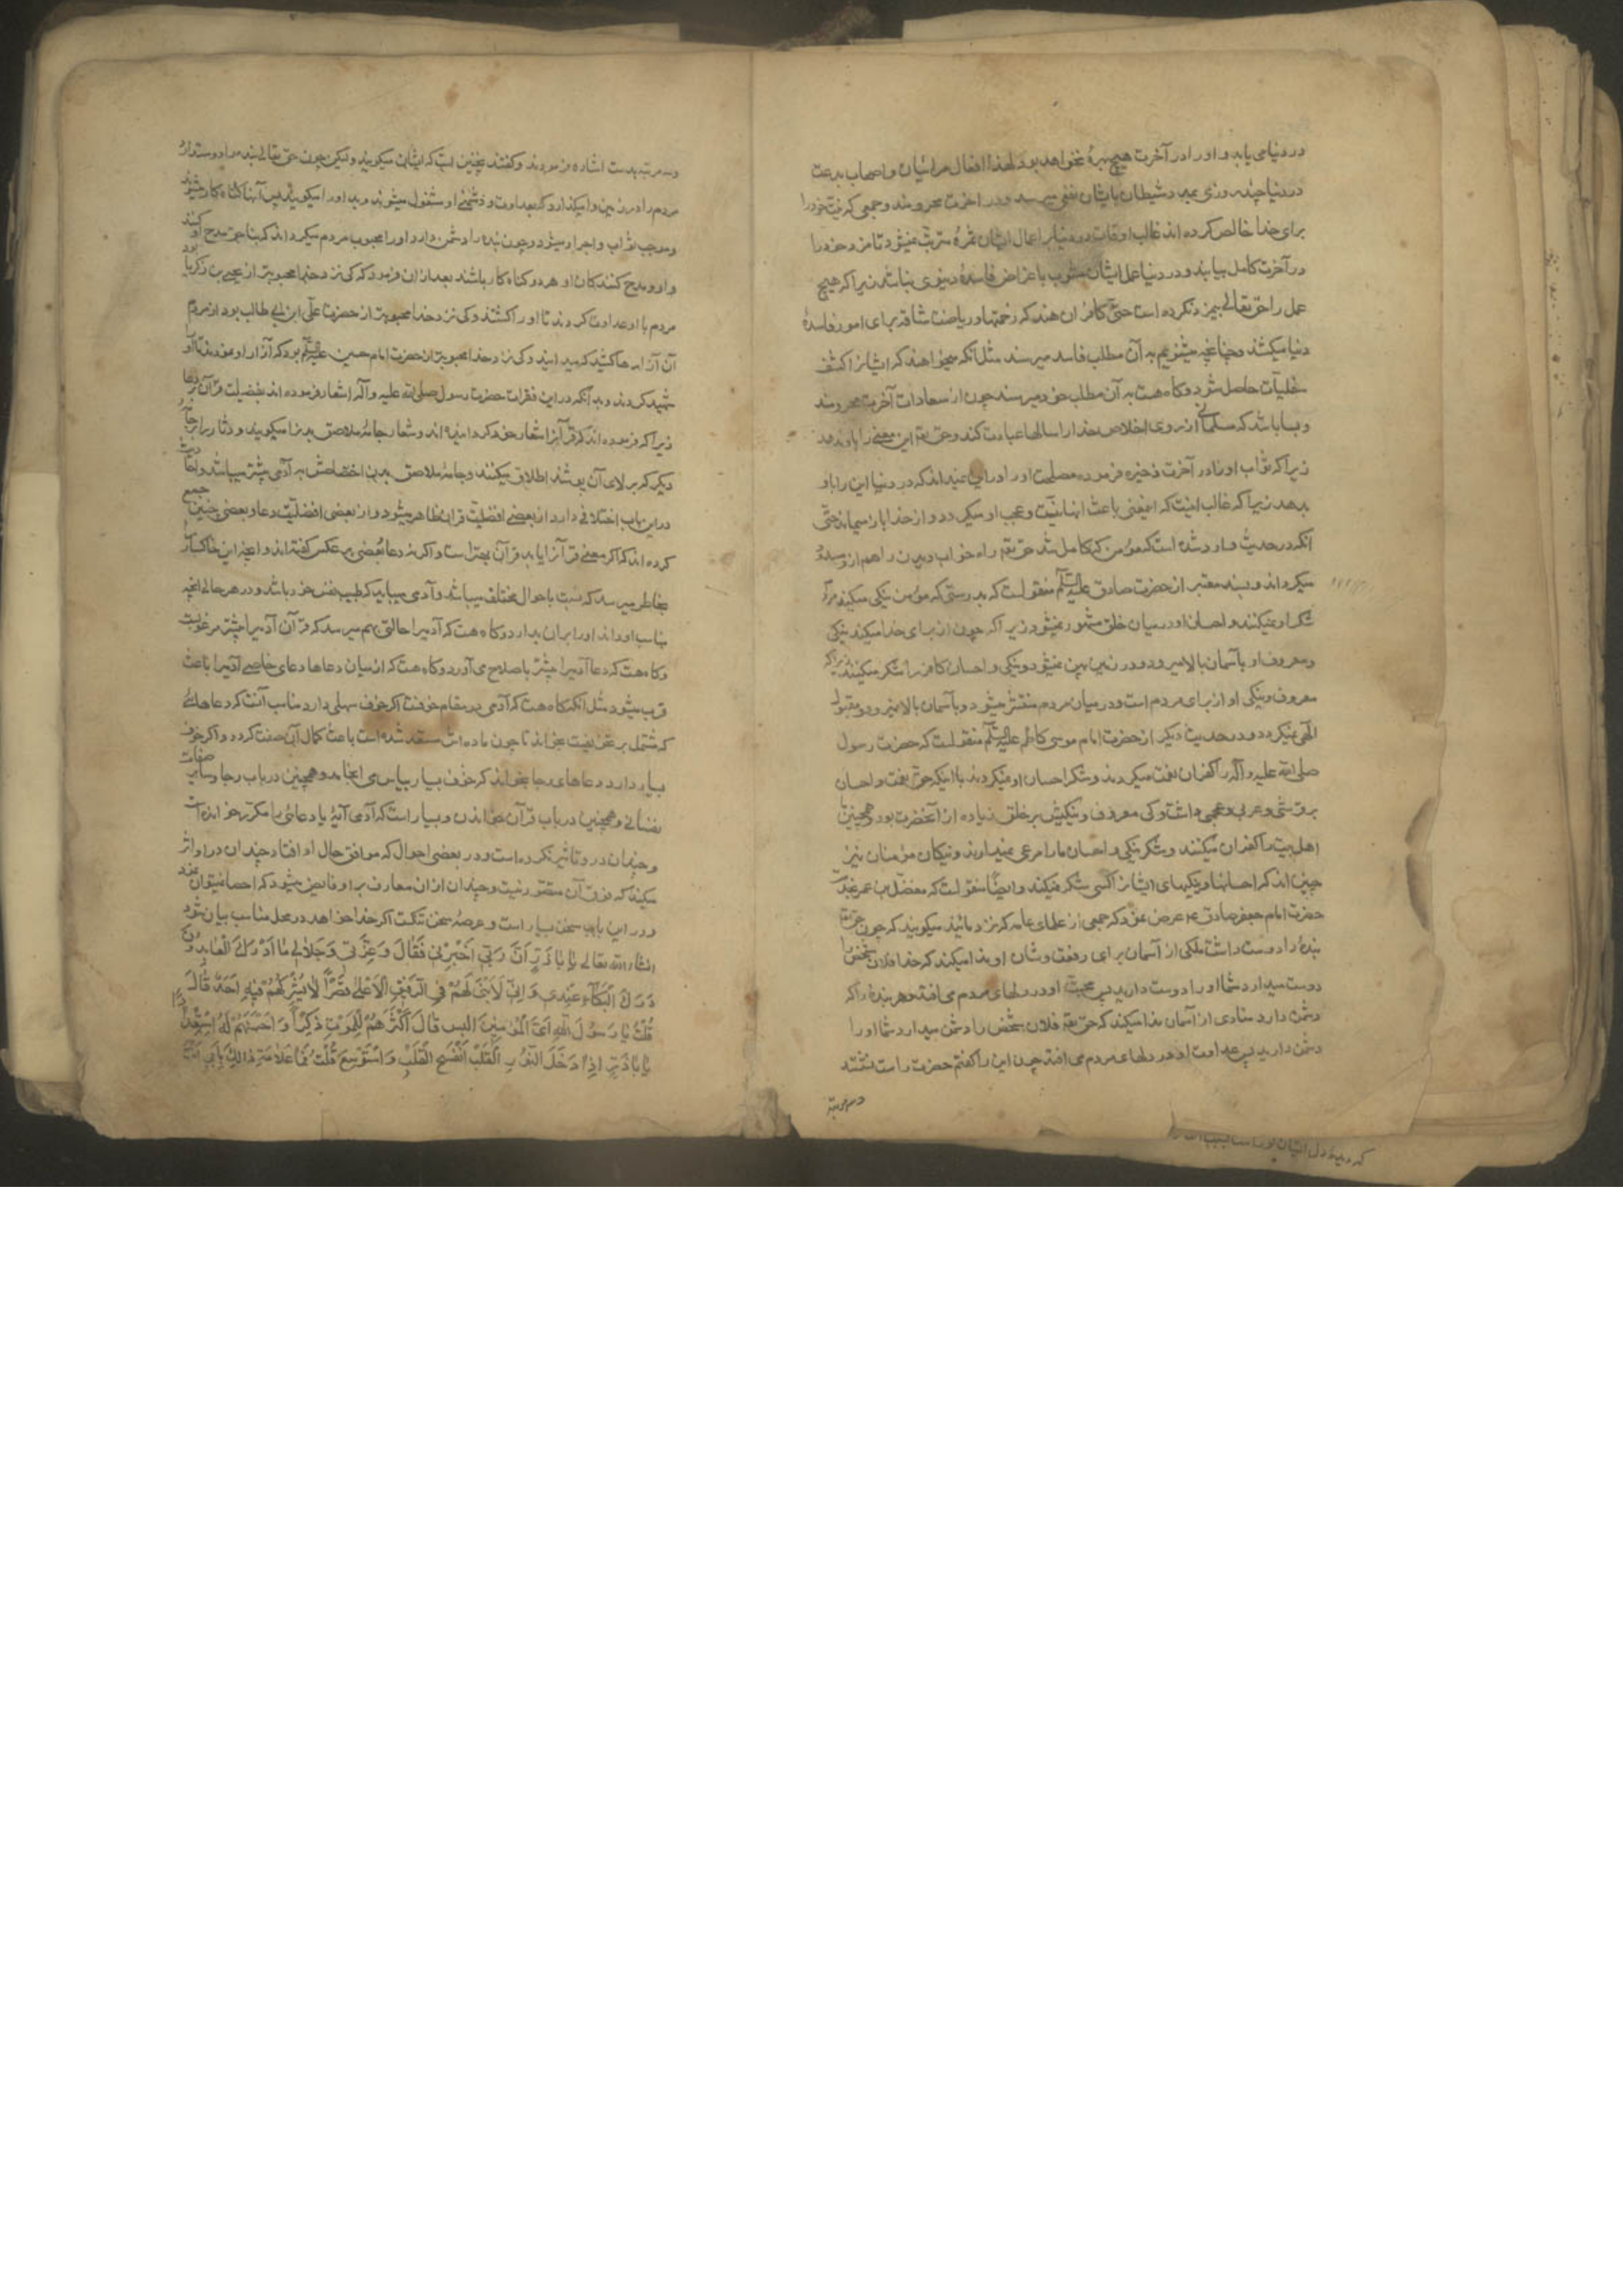 در دنیا می یابد و او را در آخرت هیچ بهرهٔ نخواهد بود لهذا افعال مرائیان و اصحاب بدعت
در دنیا چند روزی بمدد شیطان بایشان نفعی میرسد و در آخرت محرومند و جمعی که نیت خود را
برای خدا خالص کرده اند غالب اوقات در دنیا بر اعمال ایشان ثمرهٔ مترتب نمیشود تا مزد خود را
در آخرت کامل بیابند و در دنیا عمل ایشان مشوب باغراض فاسدهٔ دنیوی نباشد زیرا که هیچ
عمل را حق تعالی بیمزد نکرده است حتی کافران هند که زحمتها و ریاضات شاقه برای امور فاسدهٔ
دنیا میکشند و چنانچه میشنویم به آن مطلب فاسد میرسند مثل آنکه میخواهند که ایشانرا کشف
خلیات حاصل شود و گاه هست به آن مطلب خود میرسند چون از سعادات آخرت محرومند
و بسا باشد که مسلمانی از روی اخلاص خدا را سالها عبادت کند و حق تعه این معنی را باو ندهد
زیرا که ثواب او را در آخرت ذخیره فرموده و مصلحت او را در این نمیداند که در دنیا این را باو
بدهد زیرا که غالب اینست که اینمعنی باعث انانیت و عجب او میگردد و از خدا باز میماند حتی
آنکه در حدیث وارد شده است که مؤمن که کامل شد حق تعه راه خواب دیدن را هم از او مسدود
میگرداند و بسند معتبر از حضرت صادق علیه السلم منقولست که بدرستی که مؤمن نیکی میکند و مردم
شکر او نمیکنند و احسان او در میان خلق مشهور نمیشود زیرا که چون از برای خدا میکند نیکی
و معروف او بآسمان بالا میرود و در زمین پهن نمیشود و نیکی و احسان کافر را شکر میکنند زیرا که
معروف و نیکی او از برای مردم است و در میان مردم منتشر میشود و بآسمان بالا نمیرود و مقبول
الهی نمیگردد و در حدیث دیگر از حضرت امام موسی کاظم علیه السلم منقولست که حضرت رسول
صلی الله علیه و آله را کفران نعمت میکردند و شکر احسان او نمیکردند با اینکه حق نعمت و احسان
بر قرشی و عربی و عجمی داشت و کی معروف و نیکیش بر خلق زیاده از آنحضرت بود و همچنین ما
اهل بیت را کفران میکنند و شکر نیکی و احسان ما را مرعی نمیدارند و نیکان مؤمنان نیز
چنین اند که احسانها و نیکیهای ایشانرا کسی شکر نمیکند و ایضًا منقولست که مفضل بن عمر بخدمت
حضرت امام جعفر صادق ع عرض نمود که جمعی از علمای عامه که نزد مائید میگویند که چون حق تعه
بندهٔ را دوست داشت ملکی از آسمان برای رفعت و شان او ندا میکند که خدا فلان شخص را
دوست میدارد شما او را دوست دارید پس محبت او در دلهای مردم می افتد و هر بندهٔ را که
دشمن دارد منادی از آسمان ندا میکند که حق تعه فلان شخص را دشمن میدارد شما او را
دشمن دارید پس عداوت او در دلهای مردم می افتد چون این را گفتم حضرت راست نشستند
و سه مرتبه
و سه مرتبه بدست اشاره فرمودند و گفتند نچنین است که ایشان میگویند و لیکن چون حق تعالی بنده را دوست دارد
مردم را در زمین وامیگذارد که بعداوت و دشمنی او مشغول میشوند و بد او را میگویند پس آنها گناه کار میشوند
و موجب ثواب و اجر او میشود و چون بنده را دشمن دارد او را محبوب مردم میگرداند که بناحق مدح او کنند
و او و مدح کنندگان او هر دو گناه کار باشند بعد از آن فرمود که کی نزد خدا محبوبتر از یحیی بن زکریا بود
مردم با او عداوت کردند تا او را کشتند و کی نزد خدا محبوبتر از حضرت علی ابن ابی طالب بود از مردم
آن آزارها کشید که میدانید و کی نزد خدا محبوبتر از حضرت امام حسین علیه السلم بود که آزار او نمودند تا او
شهید کردند و بدآنکه در این فقرات حضرت رسول صلی الله علیه و آله اشعار فرموده اند بفضیلت قرآن بر دعا
زیرا که فرموده اند که قرآنرا شعار خود گردانیده اند و شعار جامهٔ ملاصق بدنرا میگویند و دثار را بر جامهٔ
دیگر که بر بالای آن پوشند اطلاق میکنند و جامهٔ ملاصق بدن اختصاصش به آدمی بیشتر میباشد و احادیث
در این باب اختلافی دارد از بعضی افضلیت قران ظاهر میشود و از بعضی افضلیت دعا و بعضی چنین جمع
کرده اند که اگر معنی قرآنرا یابد قرآن بهتر است و اگر نه دعا و بعضی بر عکس گفته اند و آنچه این خاکسار را
بخاطر میرسد که نسبت باحوال مختلف میباشد و آدمی میباید که طبیب نفس خود باشد و در هر حالی آنچه
مناسب او داند او را بران بدارد و گاه هست که آدمیرا حالتی بهم میرسد که قرآن آدمیرا بیشتر مرغوبست
و گاه هست که دعا آدمیرا بیشتر باصلاح می آورد و گاه هست که از میان دعاها دعای خاصی آدمیرا باعث
قرب میشود مثل آنکه گاه هست که آدمی در مقام خوفست اگر خوف سهلی دارد مناسب آنست که دعاهائی
که مشتمل بر تخویفست بخواند تا چون ماده اش مستعد شده است باعث کمال آن صفت گردد و اگر خوف
بسیار دارد دعاهای رجا بخواند که خوف بسیار بیاس می انجامد و همچنین در باب رجا و سایر صفات
نفسانی و همچنین در باب قرآن خواندن و بسیار است که آدمی آیهٔ یا دعائی را مکرر خوانده است
و چندان در او تاثیر نکرده است و در بعضی احوال که موافق حال او افتاد چندان در او اثر
میکند که فوق آن متصور نیست و چندان از ان معارف بر او فایض میشود که احصا نمیتوان نمود
و در این باب سخن بسیار است و عرصهٔ سخن تنگست اگر خدا خواهد در محل مناسب بیان شود
انشاء الله تعالی یَا بَا ذَرٍّ اِنَّ رَبّی اَخْبَرَنِی فَقَالَ وَ عِزَّتی وَ جَلَالِی مَا اَدْرَكَ الْعَابِدُونَ
دَرَكَ الْبُكَاءِ عِنْدِی وَ اِنّی لَاَبْنی لَهُمْ فِی الرَّفیقِ الْاَعْلی قَصْرًا لَا یَشْرَكُهُمْ فِیهِ اَحَدٌ قَالَ
قُلْتُ یَا رَسُولَ اللّٰهِ اَیُّ الْمُؤْمِنینَ اَكْیَسُ قَالَ اَكْثَرُهُمْ لِلْمَوْتِ ذِكْرًا وَ اَحْسَنُهُمْ لَهُ اسْتِعْدَادًا
یَا بَا ذَرٍّ اِذَا دَخَلَ النُّورُ الْقَلْبَ انْفَسَحَ الْقَلْبُ وَ اسْتَوْسَعَ قُلْتُ فَمَا عَلَامَةُ ذٰلِكَ بِاَبی اَنْتَ